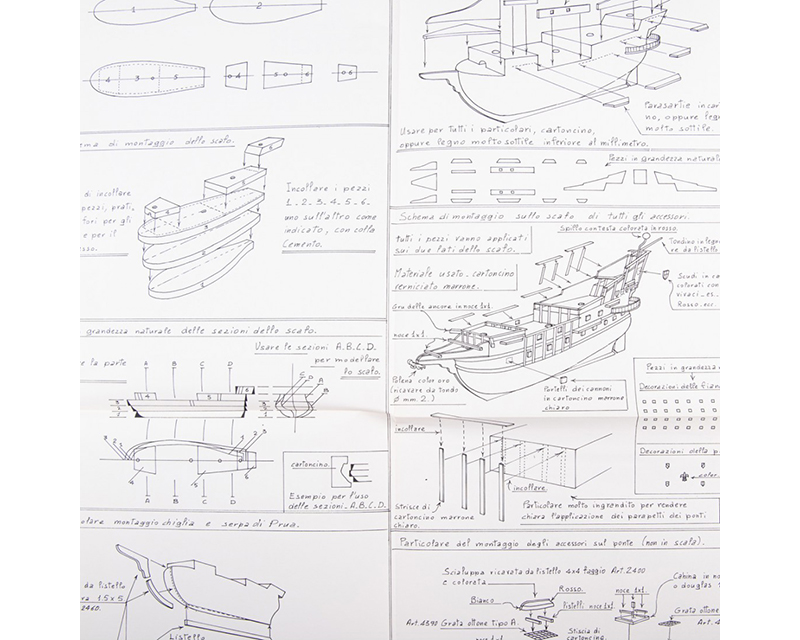 1
2
4 3 5
4
5 6
6
ema di montaggio dello scafo.
di incollare
pezzi, prati,
fori per gli
e per il
sso.
Incollare i pezzi
1_2_3_4_5_6_
uno sull'altro come
indicato, con colla
Cemento.
grandezza naturale delle sezioni dello scafo.
Usare le sezioni A.B.C.D.
per modellare
lo scafo.
re la parte
A B C D
4 5 6
3
2
1
C D A B
3 2 1
1 2 3
4 5
A B C D
cartoncino.
Esempio per l'uso
delle sezioni. A.B.C.D.
olare montaggio chiglia e serpa di Prua.
da listello
ra 1.5x5
2460.
Listello
Parasartie in car
no, oppure legn
molto sottile.
Usare per tutti i particolari, cartoncino,
oppure legno molto sottile inferiore al millimetro.
Pezzi in grandezza natural
Schema di montaggio sullo scafo di tutti gli accessori.
Spillo con testa colorata in rosso.
tutti i pezzi vanno applicati
sui due lati dello scafo.
Tondino in legn
re da listello
Materiale usato_cartoncino
verniciato marrone.
Scudi in ca
colorati con
vivaci_es._
Rosso.ecc.
Gru delle ancore in noce 1x1.
noce 1x1.
Polena color oro
(ricavare da tondo
Ø mm. 2.)
Portelli dei cannoni
in cartoncino marrone
chiaro
Pezzi in grandezza
Decorazioni delle fian
Decorazioni della p
color
incollare
incollare
Strisce di
cartoncino marrone
chiaro.
Particolare molto ingrandito per rendere
chiara l'applicazione dei parapetti dei ponti
Particolare del montaggio degli accessori sul ponte (non in scala).
Scialuppa ricavata da listello 4x4 faggio Art. 2400
e colorata
Rosso.
Bianco
listelli noce 1x1
noce 1x1
Cabina in no
o douglas
Art. 4892 Grata ottone tipo A
Striscia di
cartoncino.
Grata ottone
Art. 4
noce 1x1